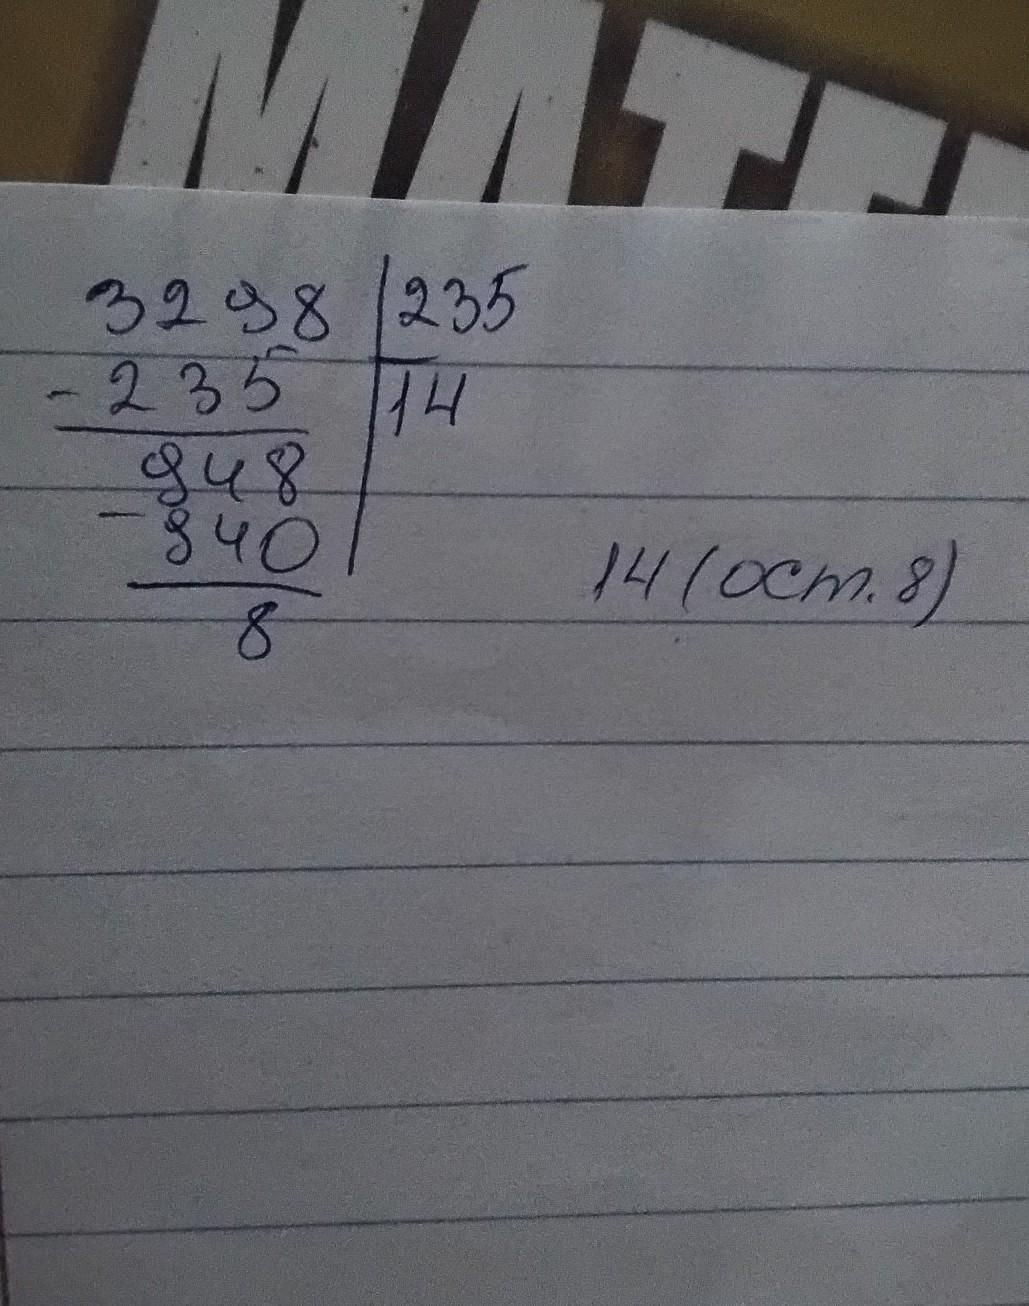 МАТЕ
3298 235
- 235 14
948
- 940
8
14 (ост. 8)